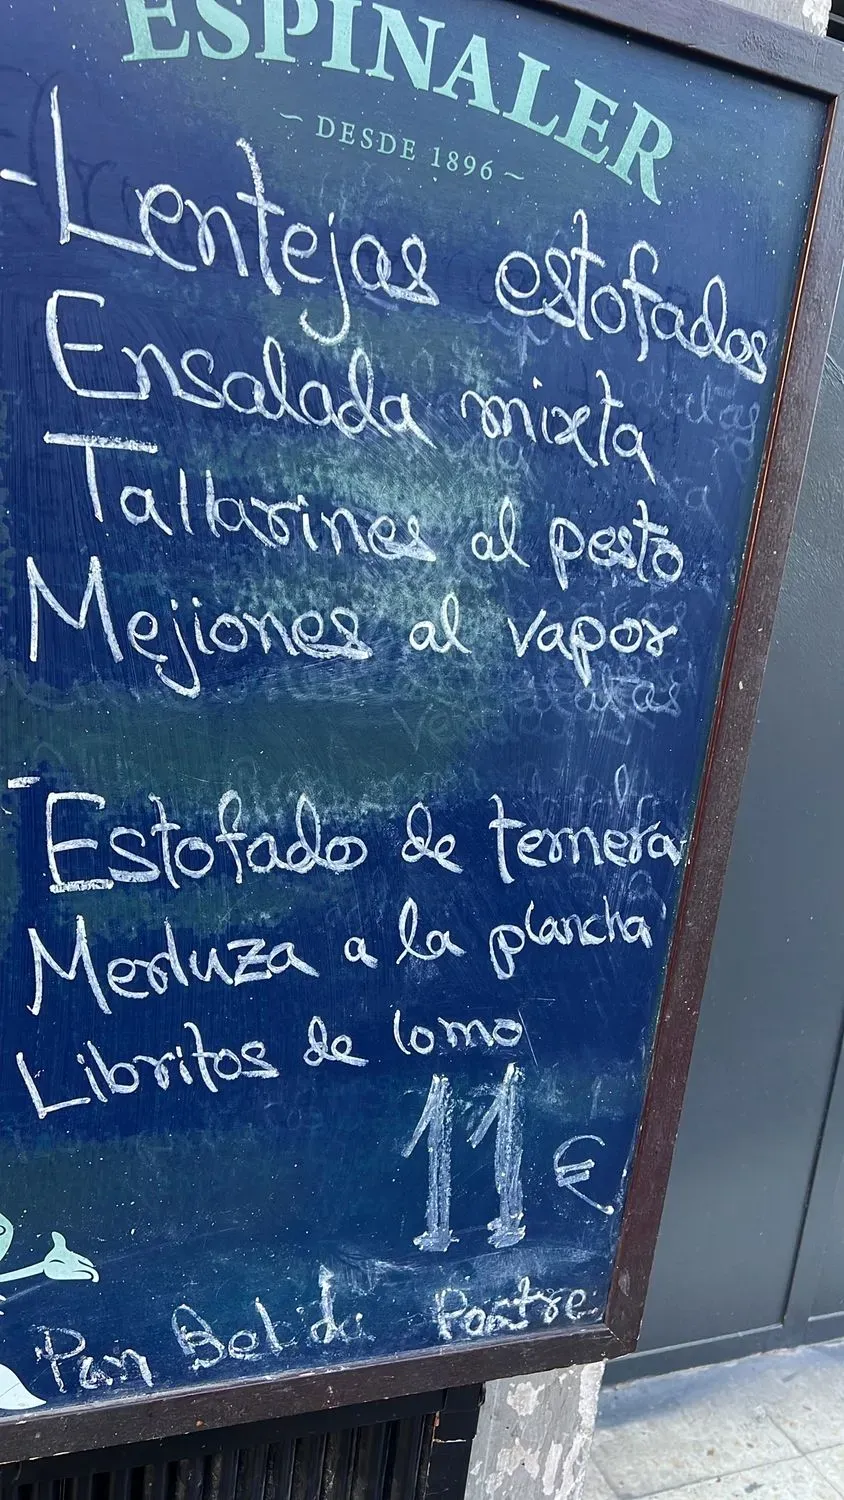 ESPINALER
~ DESDE 1896 ~
- Lentejas estofados
Ensalada mixta
Tallarines al pesto
Mejiones al vapor
- Estofado de ternera
Merluza a la plancha
Libritos de lomo
11 €
Pan Bebida Postre